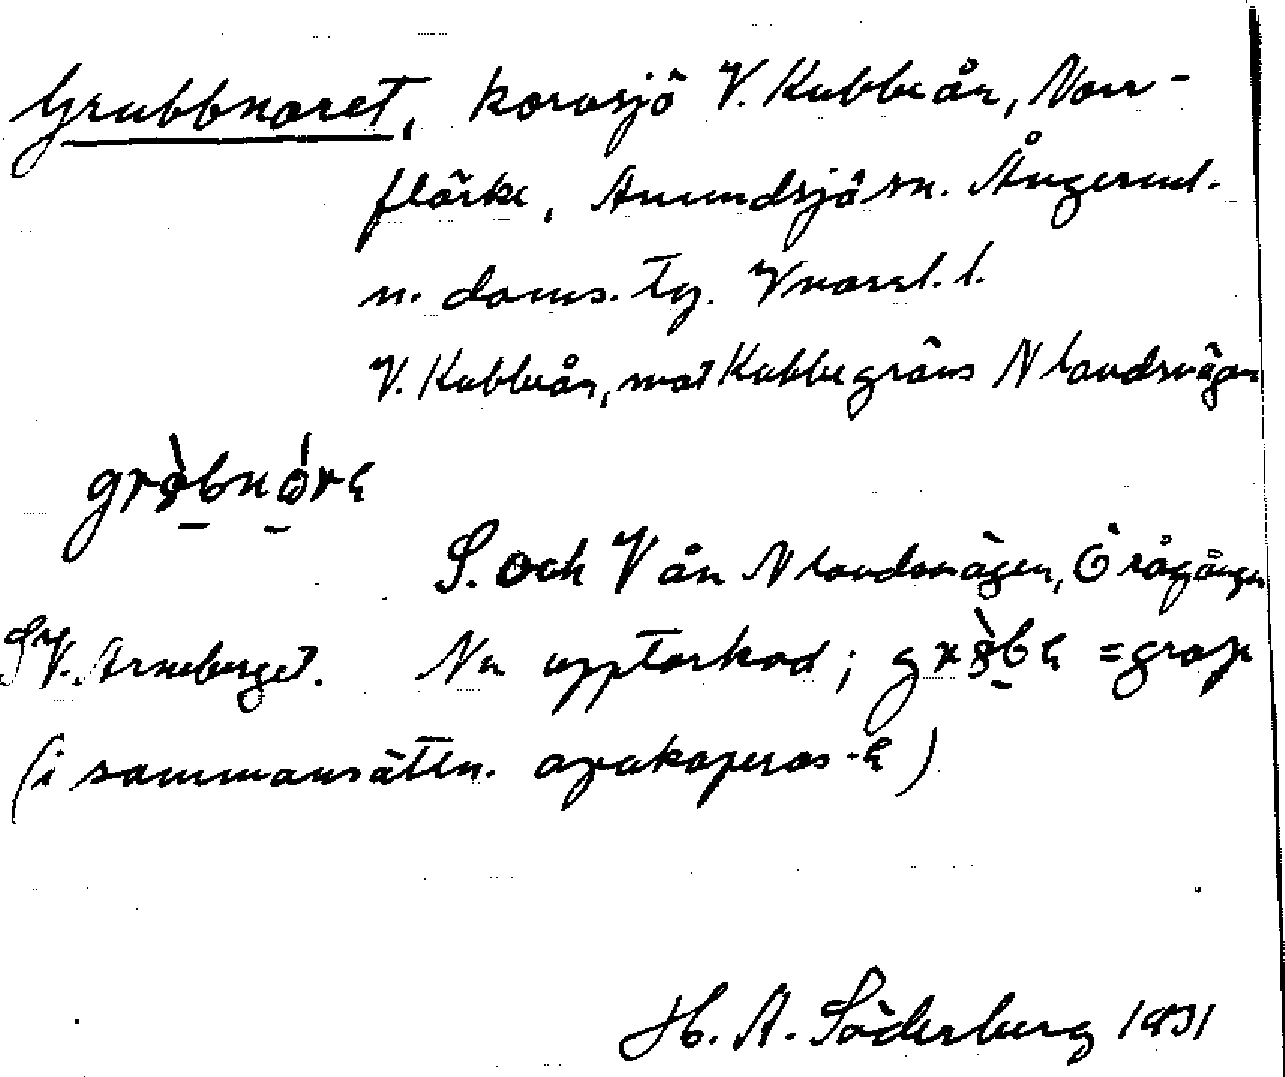 Grubbnoret, korvsjö V. Kubbeån, Norr-
flärke, Anundsjö sn. Ångerml.
n. doms. tg. Vnorrl. l.
V. Kubbeån, mot Kubbe gräns N landsvägen
S. och V ån N landsvägen, Ö rågången
SV. Arneberget. Nu upptorkad; = grop
(i sammansättn. apokoperas -e)
H. A. Söderberg 1931